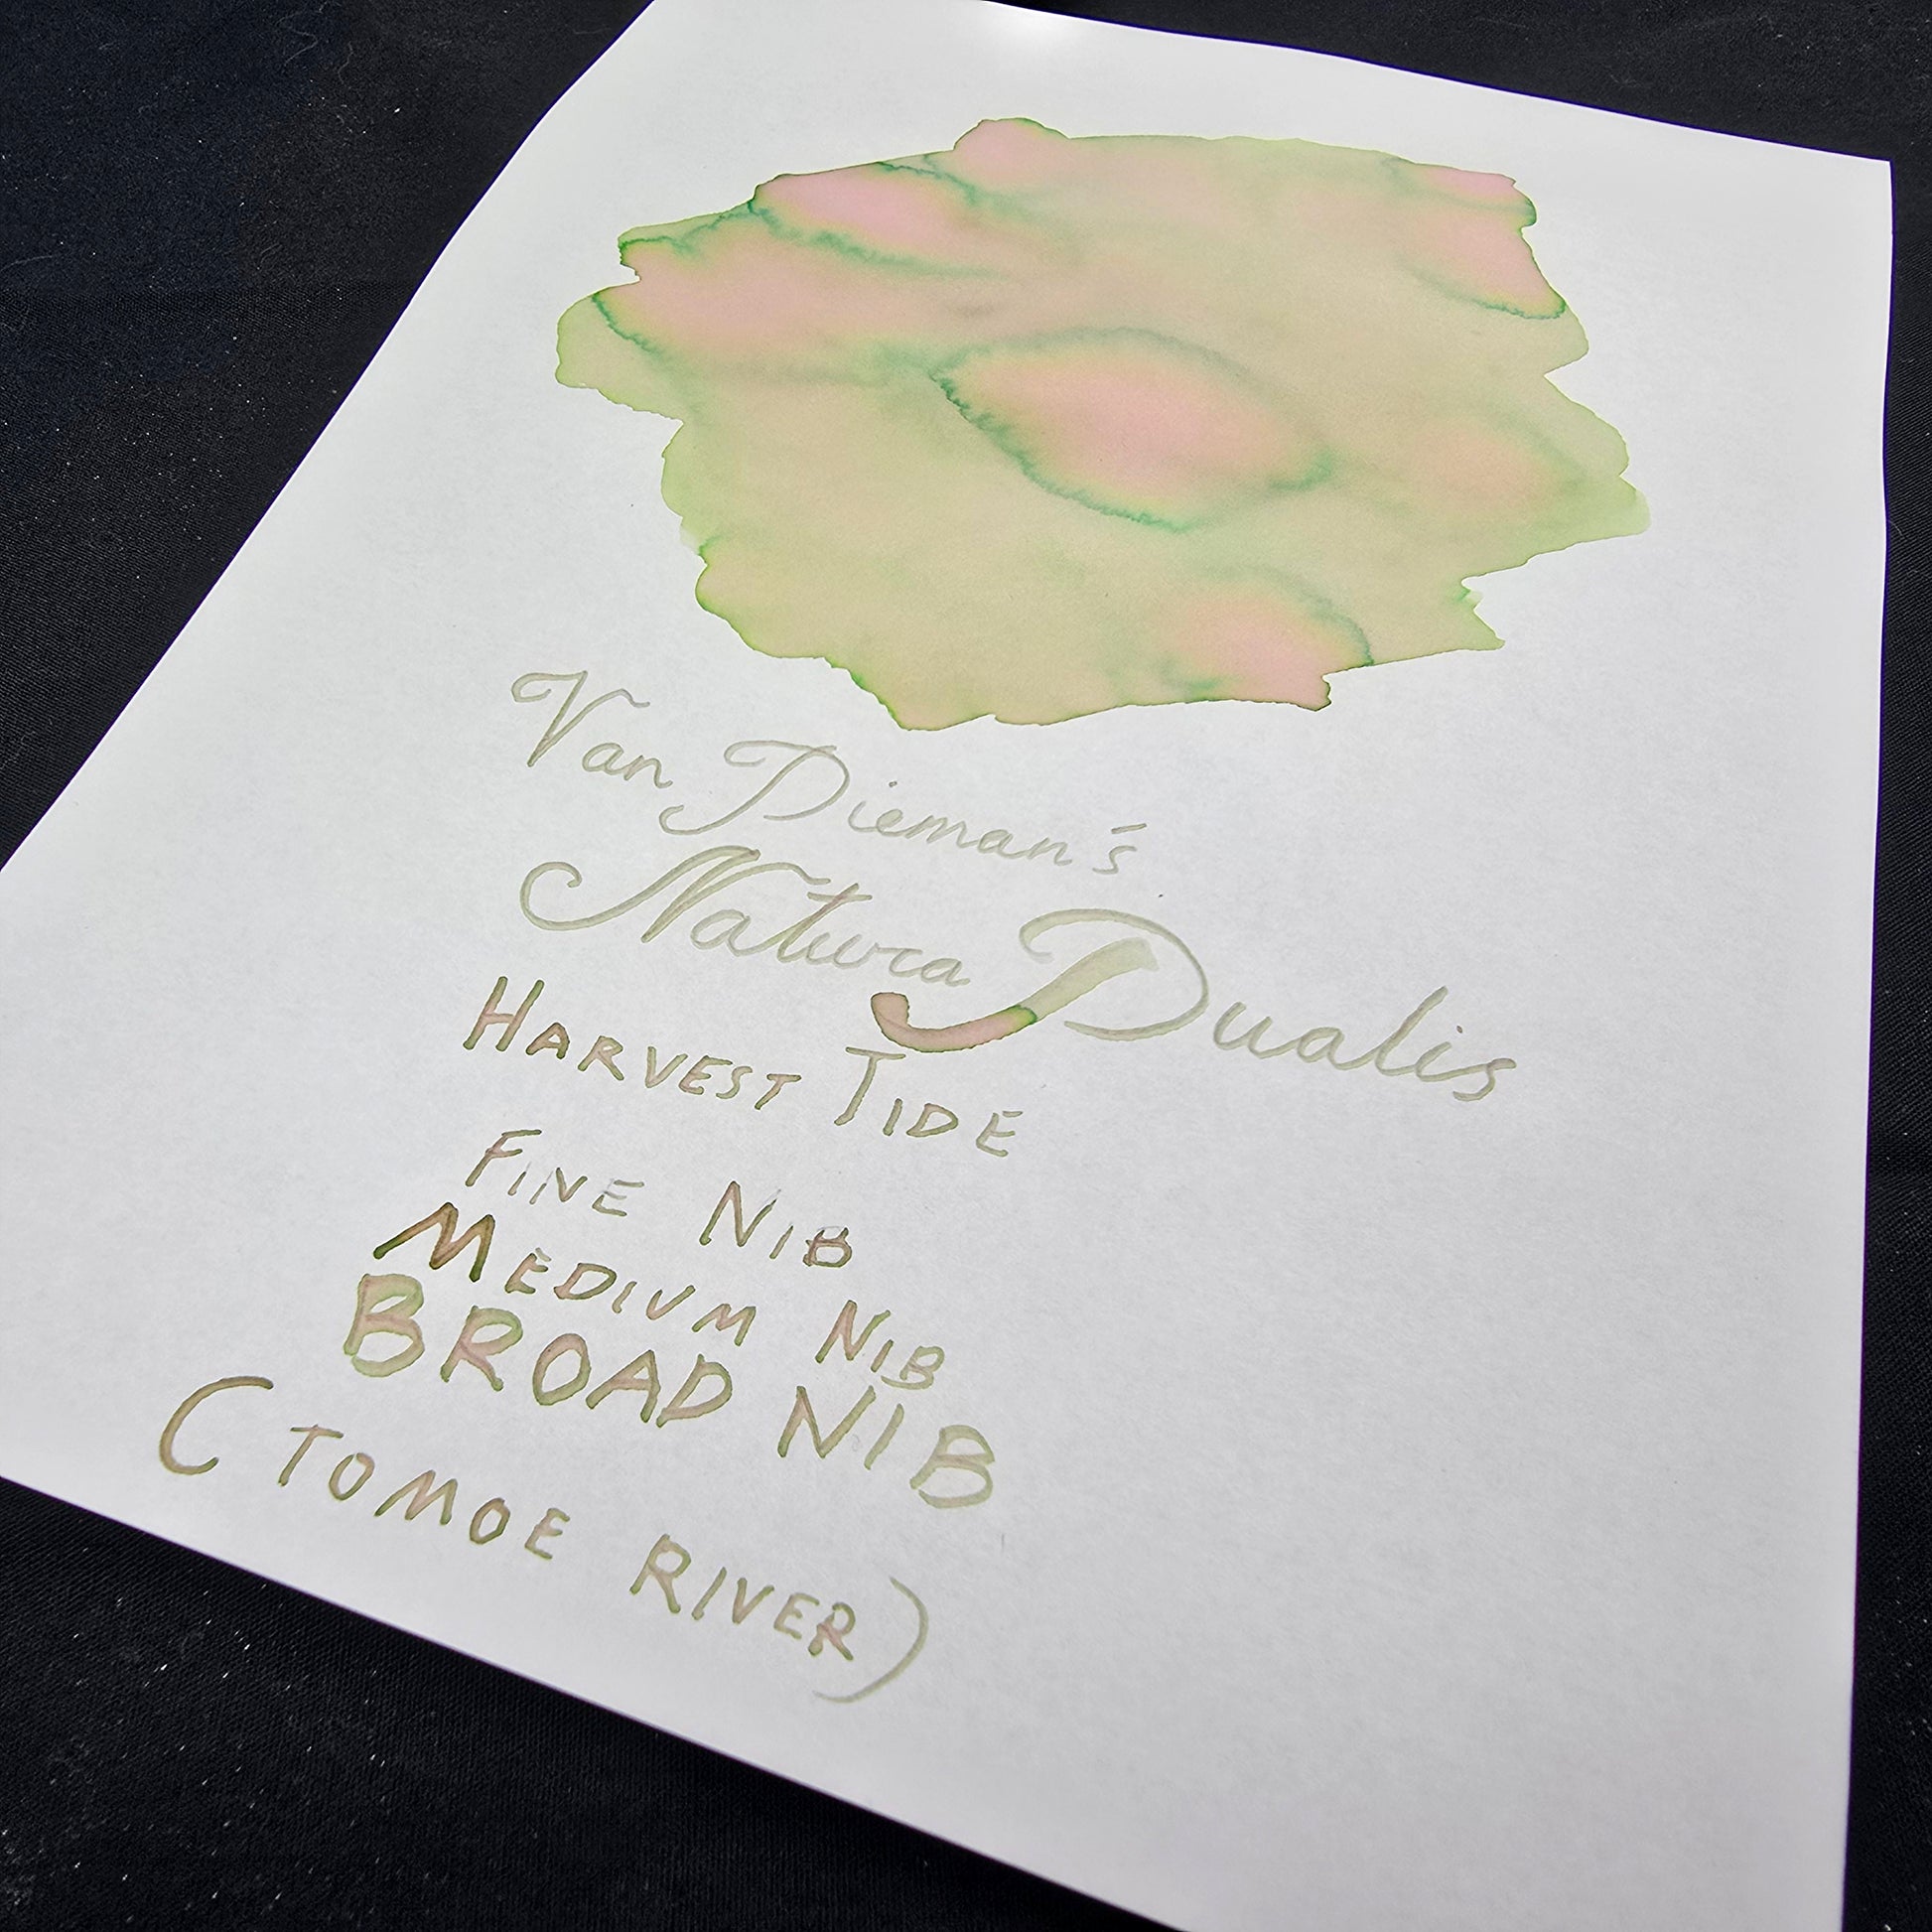 Van Dieman's
Natura Dualis
HARVEST TIDE
FINE NIB
MEDIUM NIB
BROAD NIB
(TOMOE RIVER)